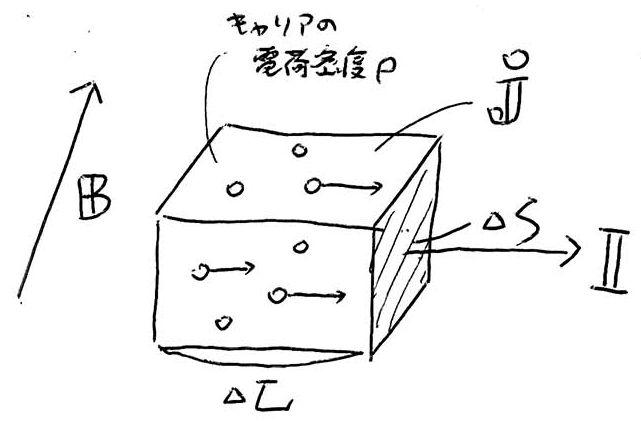 キャリアの
電荷密度ρ
j
B
ΔS
I
ΔL